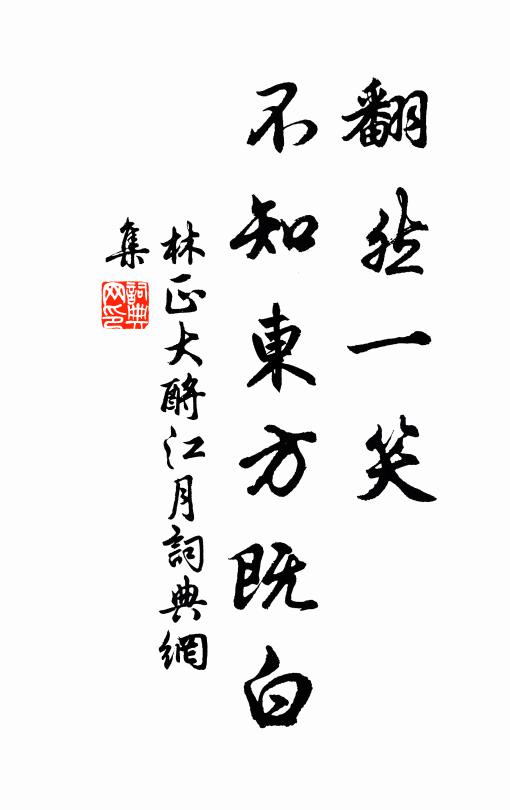 翻然一笑
不知東方既白
林正大酹江月詞典網
集
詞典
网印